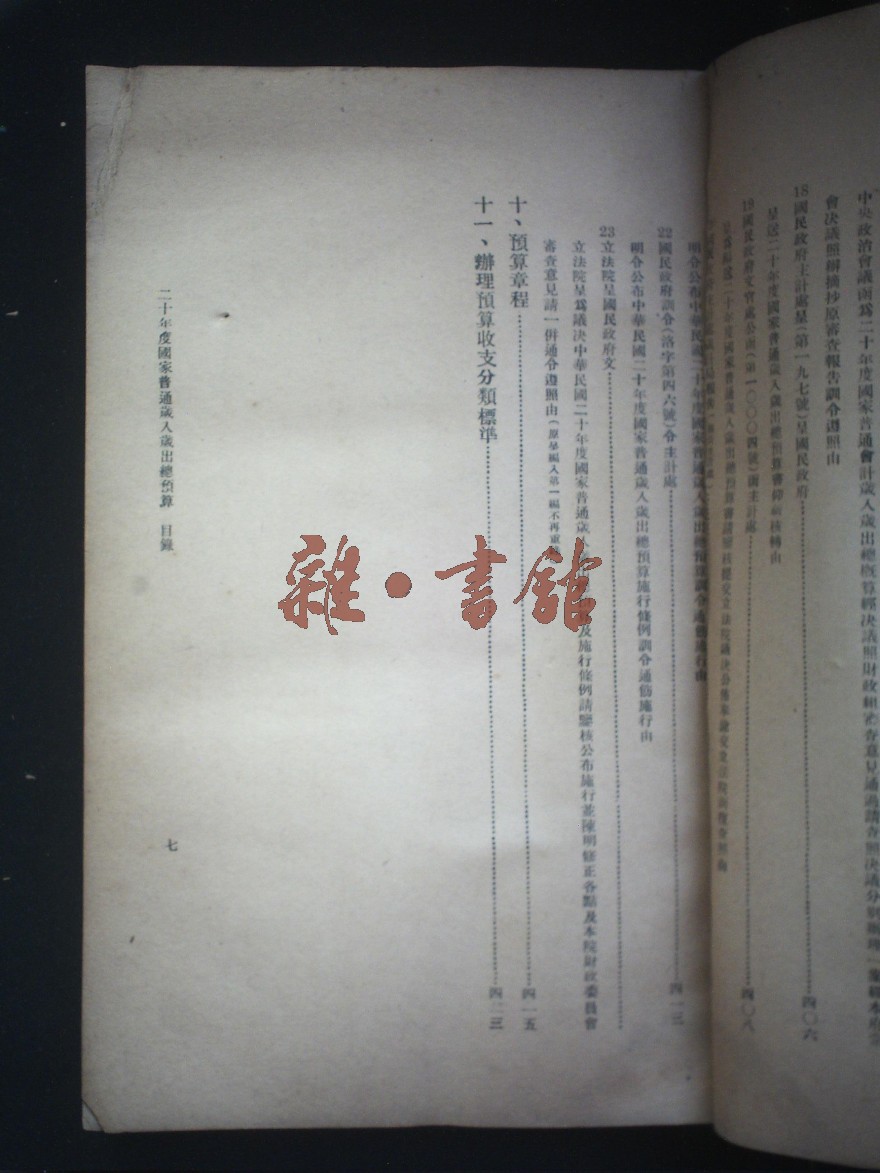 中央政治會議函爲二十年度國家普通會計歲入歲出總概算經決議照財政組審查意見通過請查照決議分別辦理
會決議照辦摘抄原審查報告訓令遵照由
18國民政府主計處呈(第一九七號)呈國民政府 四〇六
呈送二十年度國家普通歲入歲出總預算書仰祈核轉由
19國民政府文官處公函(第一〇〇〇四號)函主計處 四〇八
明令公布中華民國二十年度國家普通歲入歲出總預算訓令通飭施行由
22國民政府訓令(洛字第四六號)令主計處 四一三
明令公布中華民國二十年度國家普通歲入歲出總預算施行條例訓令通飭施行由
23立法院呈國民政府文
立法院呈爲議決中華民國二十年度國家普通歲入 及施行條例請鑒核公布施行並陳明修正各點及本院財政委員會
審查意見請一併通令遵照由(原呈編入第一編不再重
十、預算章程 四一五
十一、辦理預算收支分類標準 四二三
二十年度國家普通歲入歲出總預算 目錄
七
雜·書館